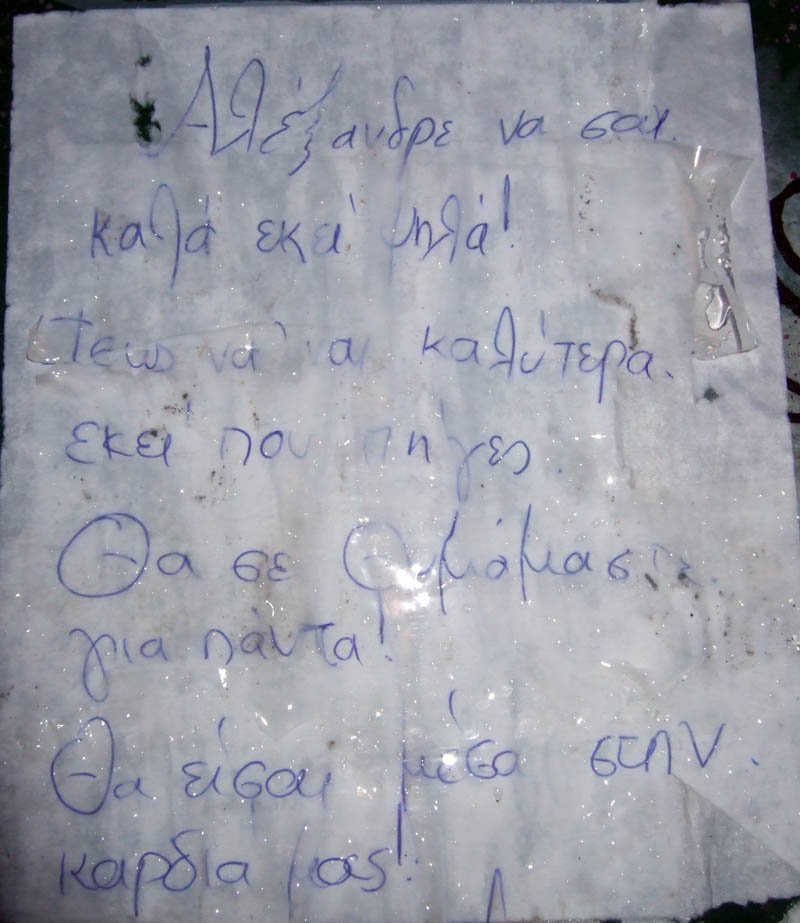 Αλέξανδρε να σαι
καλά εκεί ψηλά!
Ίσως να ναι καλύτερα.
εκεί που πήγες
Θα σε θυμόμαστε
για πάντα!
Θα είσαι μέσα στην.
καρδιά μας!